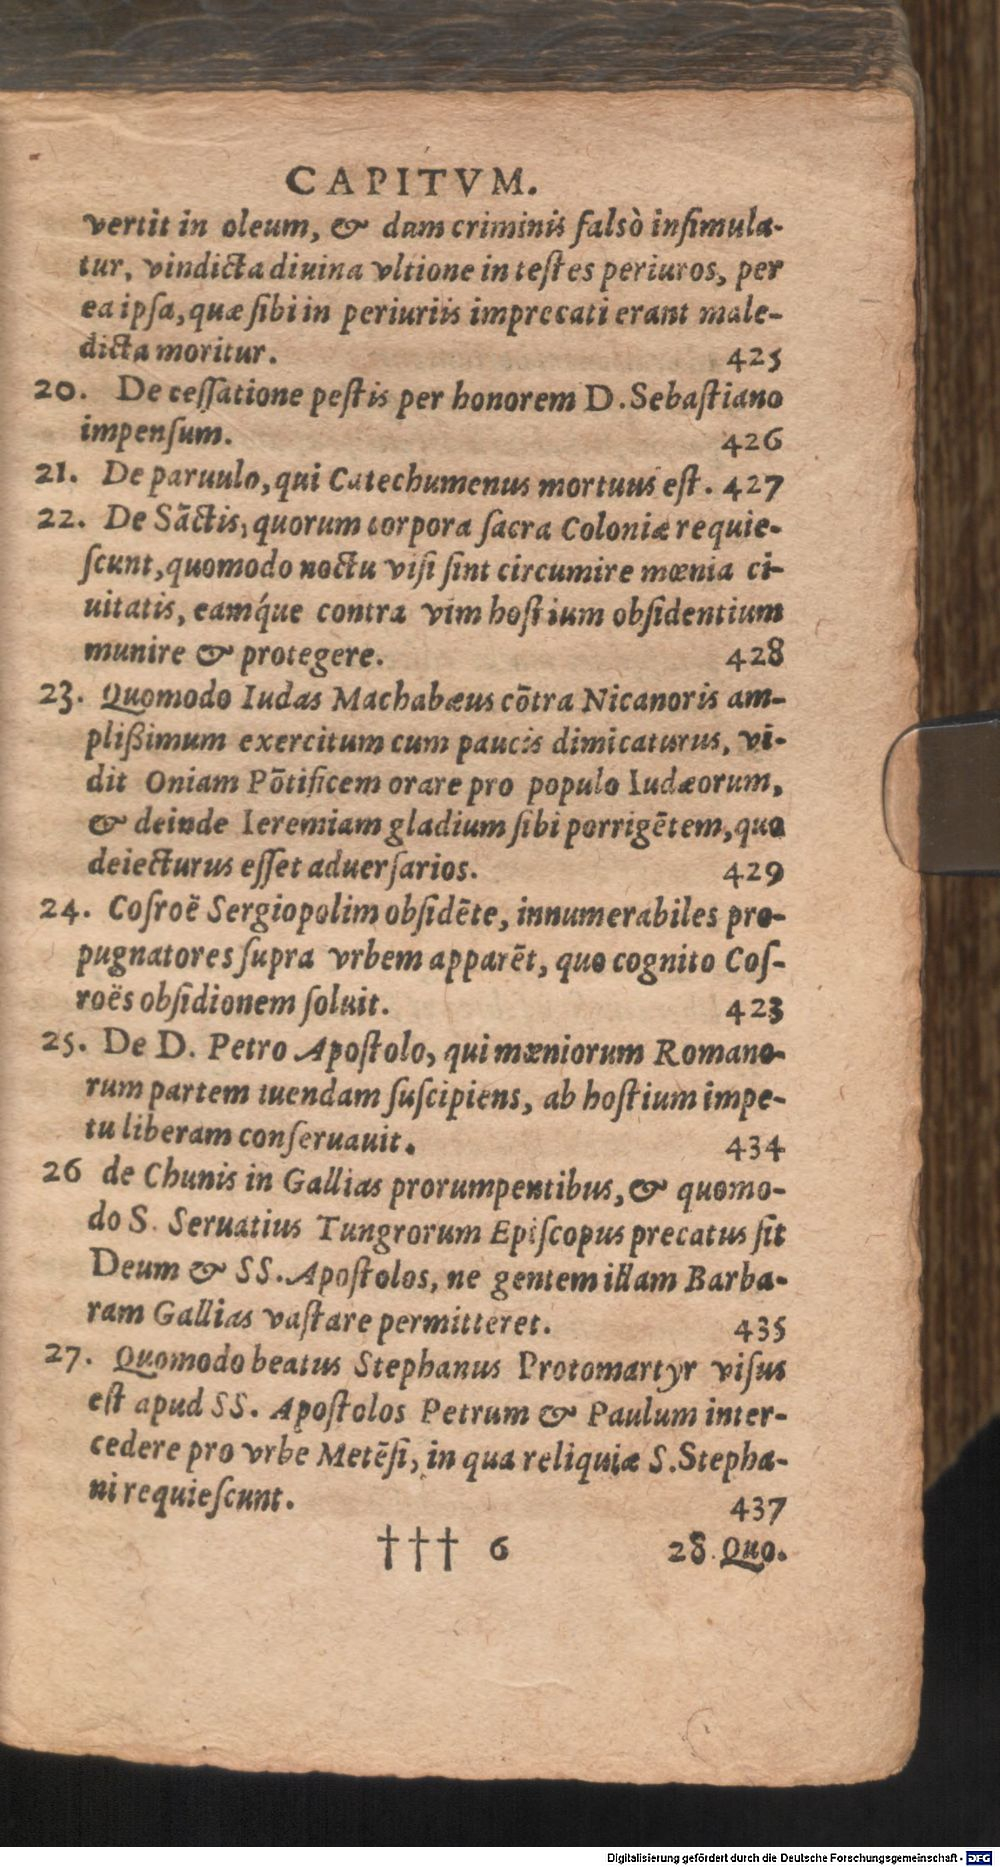 CAPITVM.
vertit in oleum, & dum criminis falsò insimula-
tur, vindicta diuina vltione in testes periuros, per
ea ipsa, quæ sibi in periuriis imprecati erant male-
dicta moritur. 425
20. De cessatione pestis per honorem D. Sebastiano
impensum. 426
21. De paruulo, qui Catechumenus mortuus est. 427
22. De Sāctis, quorum corpora sacra Coloniæ requie-
scunt, quomodo noctu visi sint circumire mœnia ci-
uitatis, eamq́ue contra vim hostium obsidentium
munire & protegere. 428
23. Quomodo Iudas Machabæus cōtra Nicanoris am-
plißimum exercitum cum paucis dimicaturus, vi-
dit Oniam Pōtificem orare pro populo Iudæorum,
& deinde Ieremiam gladium sibi porrigētem, quo
deiecturus esset aduersarios. 429
24. Cosroë Sergiopolim obsidēte, innumerabiles pro-
pugnatores supra vrbem apparēt, quo cognito Cos-
roës obsidionem soluit. 423
25. De D. Petro Apostolo, qui mæniorum Romano-
rum partem tuendam suscipiens, ab hostium impe-
tu liberam conseruauit. 434
26 de Chunis in Gallias prorumpentibus, & quomo-
do S. Seruatius Tungrorum Episcopus precatus sit
Deum & SS. Apostolos, ne gentem illam Barba-
ram Gallias vastare permitteret. 435
27. Quomodo beatus Stephanus Protomartyr visus
est apud SS. Apostolos Petrum & Paulum inter-
cedere pro vrbe Metēsi, in qua reliquiæ S. Stepha-
ni requiescunt. 437
††† 6 28. Quo.
Digitalisierung gefördert durch die Deutsche Forschungsgemeinschaft - DFG